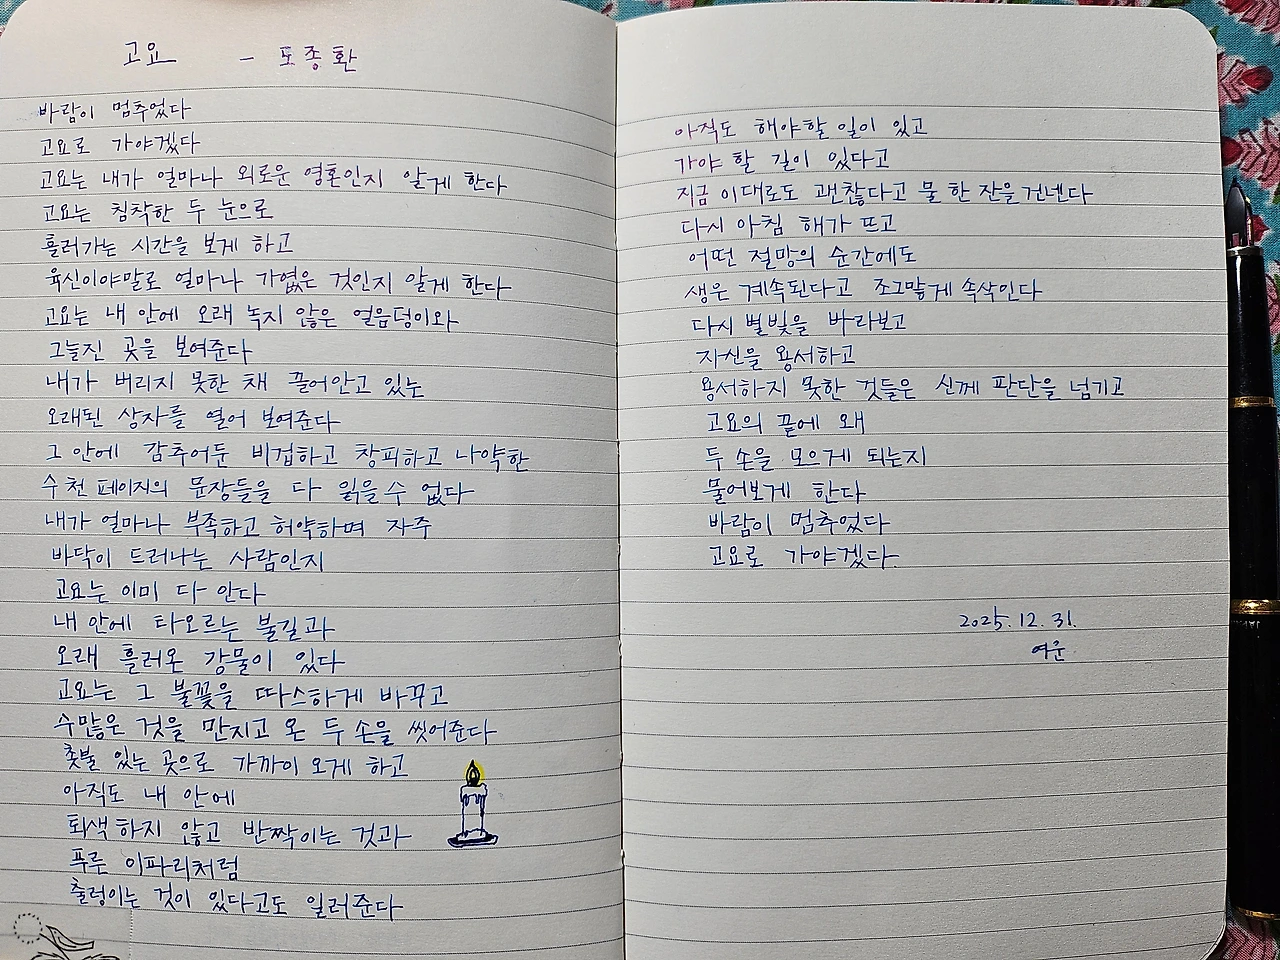 고요 - 도종환
바람이 멈추었다
고요로 가야겠다
고요는 내가 얼마나 외로운 영혼인지 알게 한다
고요는 침착한 두 눈으로
흘러가는 시간을 보게 하고
육신이야말로 얼마나 가엾은 것인지 알게 한다
고요는 내 안에 오래 녹지 않은 얼음덩이와
그늘진 곳을 보여준다
내가 버리지 못한 채 끌어안고 있는
오래된 상자를 열어 보여준다
그 안에 감추어둔 비겁하고 창피하고 나약한
수천 페이지의 문장들을 다 읽을 수 없다
내가 얼마나 부족하고 허약하며 자주
바닥이 드러나는 사람인지
고요는 이미 다 안다
내 안에 타오르는 불길과
오래 흘러온 강물이 있다
고요는 그 불꽃을 따스하게 바꾸고
수많은 것을 만지고 온 두 손을 씻어준다
촛불 있는 곳으로 가까이 오게 하고
아직도 내 안에
퇴색하지 않고 반짝이는 것과
푸른 이파리처럼
출렁이는 것이 있다고도 일러준다
아직도 해야할 일이 있고
가야 할 길이 있다고
지금 이대로도 괜찮다고 물 한 잔을 건넨다
다시 아침 해가 뜨고
어떤 절망의 순간에도
생은 계속된다고 조그맣게 속삭인다
다시 별빛을 바라보고
자신을 용서하고
용서하지 못한 것들은 신께 판단을 넘기고
고요의 끝에 왜
두 손을 모으게 되는지
물어보게 한다
바람이 멈추었다
고요로 가야겠다.
2025. 12. 31.
여운